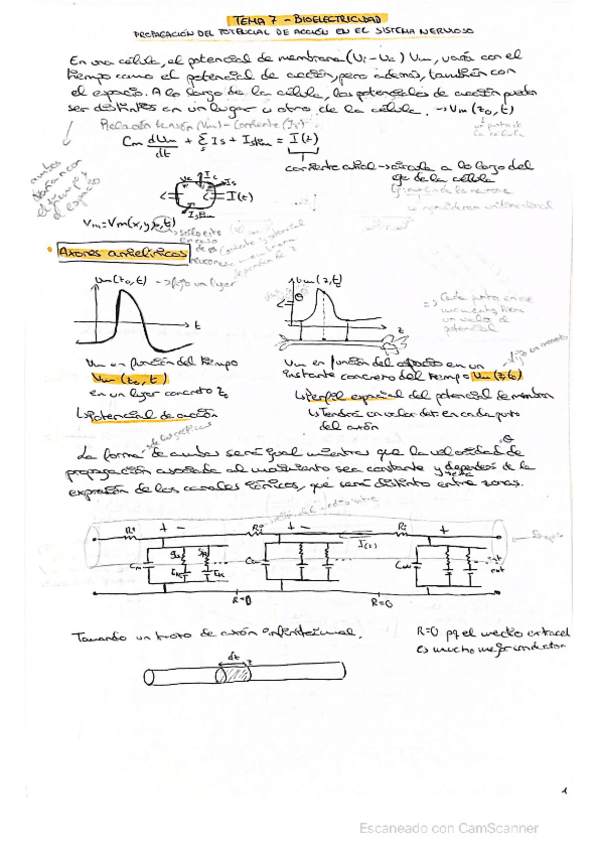 TEMA 7 - BIOELECTRICIDAD
PROPAGACIÓN DEL POTENCIAL DE ACCIÓN EN EL SISTEMA NERVIOSO
En una célula, el potencial de membrana (Vi - Ve) Vm, varía con el
tiempo como el potencial de acción, pero además, también con
el espacio. A lo largo de la célula, los potenciales de acción pueden
ser distintos en un lugar u otro de la célula. → Vm (z0, t)
Relación tensión (Vm) - Corriente (Is)
Cm dVm/dt + Σ Is + Istim = I(t)
corriente axial → circula a lo largo del
eje de la célula
ambos
varían con
el tiempo y
el espacio
Ic
Is
I(t)
Istim
Vm = Vm(x, y, z, t)
Axones amielínicos
Vm(z0, t) → fijo un lugar
t
Vm(z, t0)
θ
z
⇒ Cada punto en ese
momento tiene
un valor de
potencial
Vm en función del tiempo
Vm (z0, t)
en un lugar concreto z0
↳ Potencial de acción
Vm en función del espacio en un
instante concreto del tiempo Vm (z, t0)
↳ Perfil espacial del potencial de membrana
↳ Tendrá un valor det. en cada punto
del axón
La forma de ambas será igual mientras que la velocidad de
propagación asociada al movimiento sea constante y dependerá de la
expresión de los canales iónicos, que será distinto entre zonas.
θ
Ri + - Ri + - Ri +
I(z)
Cm
gNa gK
ENa EK
Cm
Cm
int
ext
R=0
R=0
Tomando un trozo de axón infinitesimal.
R=0 pq el medio extracel
es mucho mejor conductor
dz
1
Escaneado con CamScanner